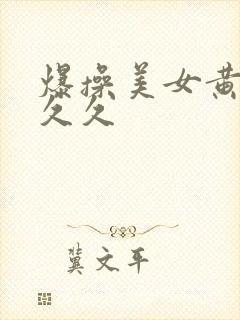 爆操美女黄
久久
冀文平